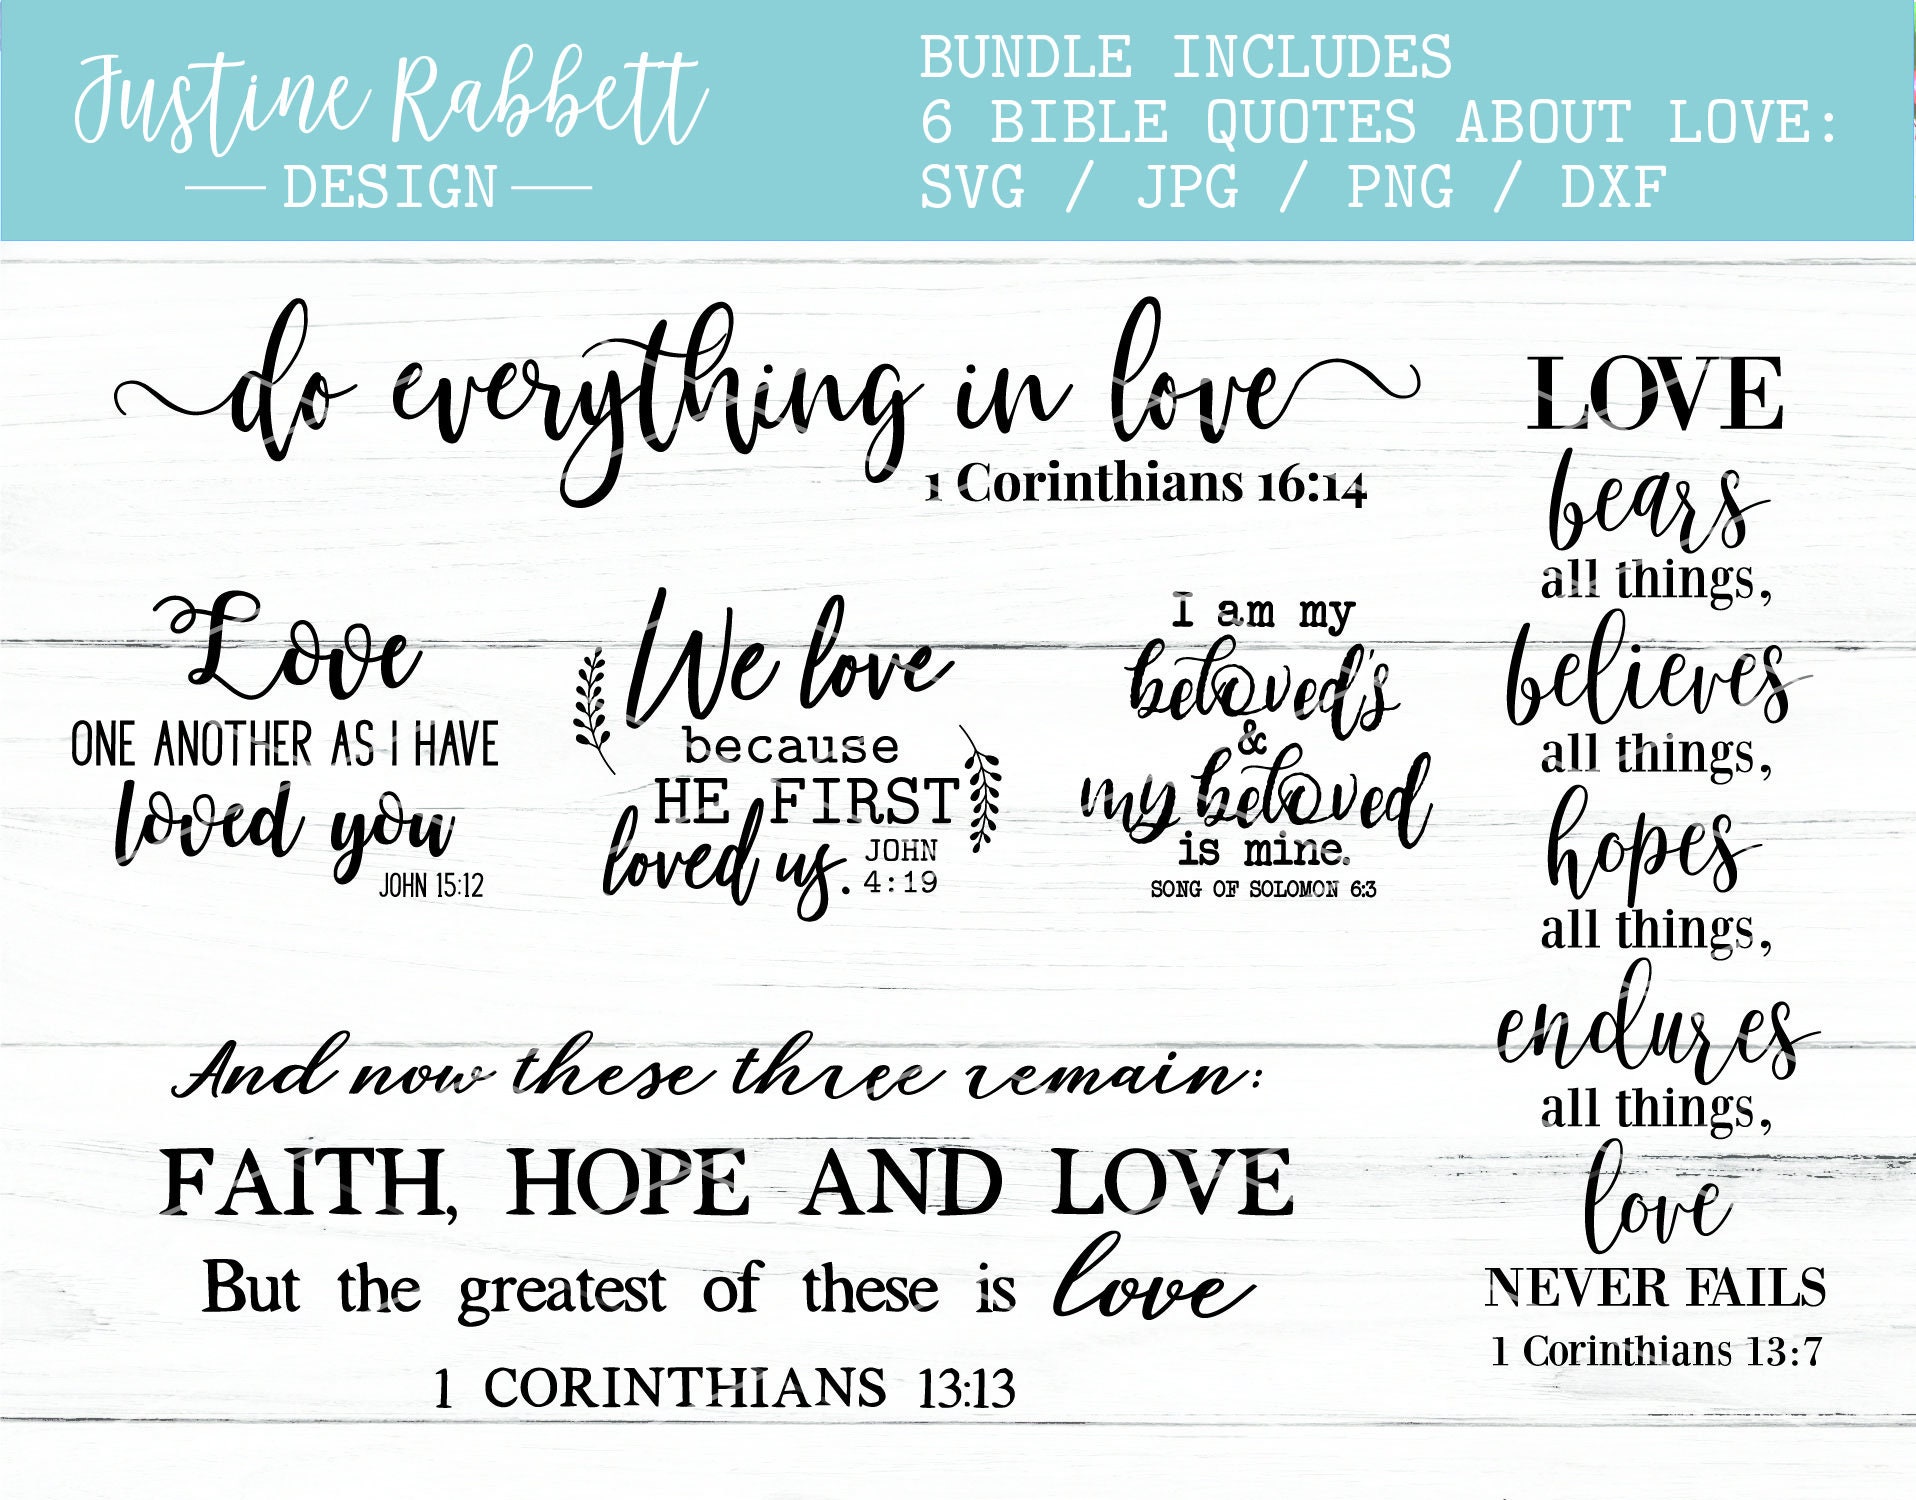 Justine Rabbett
DESIGN
BUNDLE INCLUDES
6 BIBLE QUOTES ABOUT LOVE:
SVG / JPG / PNG / DXF
do everything in love
1 Corinthians 16:14
Love
ONE ANOTHER AS I HAVE
loved you
JOHN 15:12
We love
because
HE FIRST
loved us.
JOHN
4:19
I am my
beloved's
&
my beloved
is mine.
SONG OF SOLOMON 6:3
And now these three remain:
FAITH, HOPE AND LOVE
But the greatest of these is love
1 CORINTHIANS 13:13
LOVE
bears
all things,
believes
all things,
hopes
all things,
endures
all things,
love
NEVER FAILS
1 Corinthians 13:7